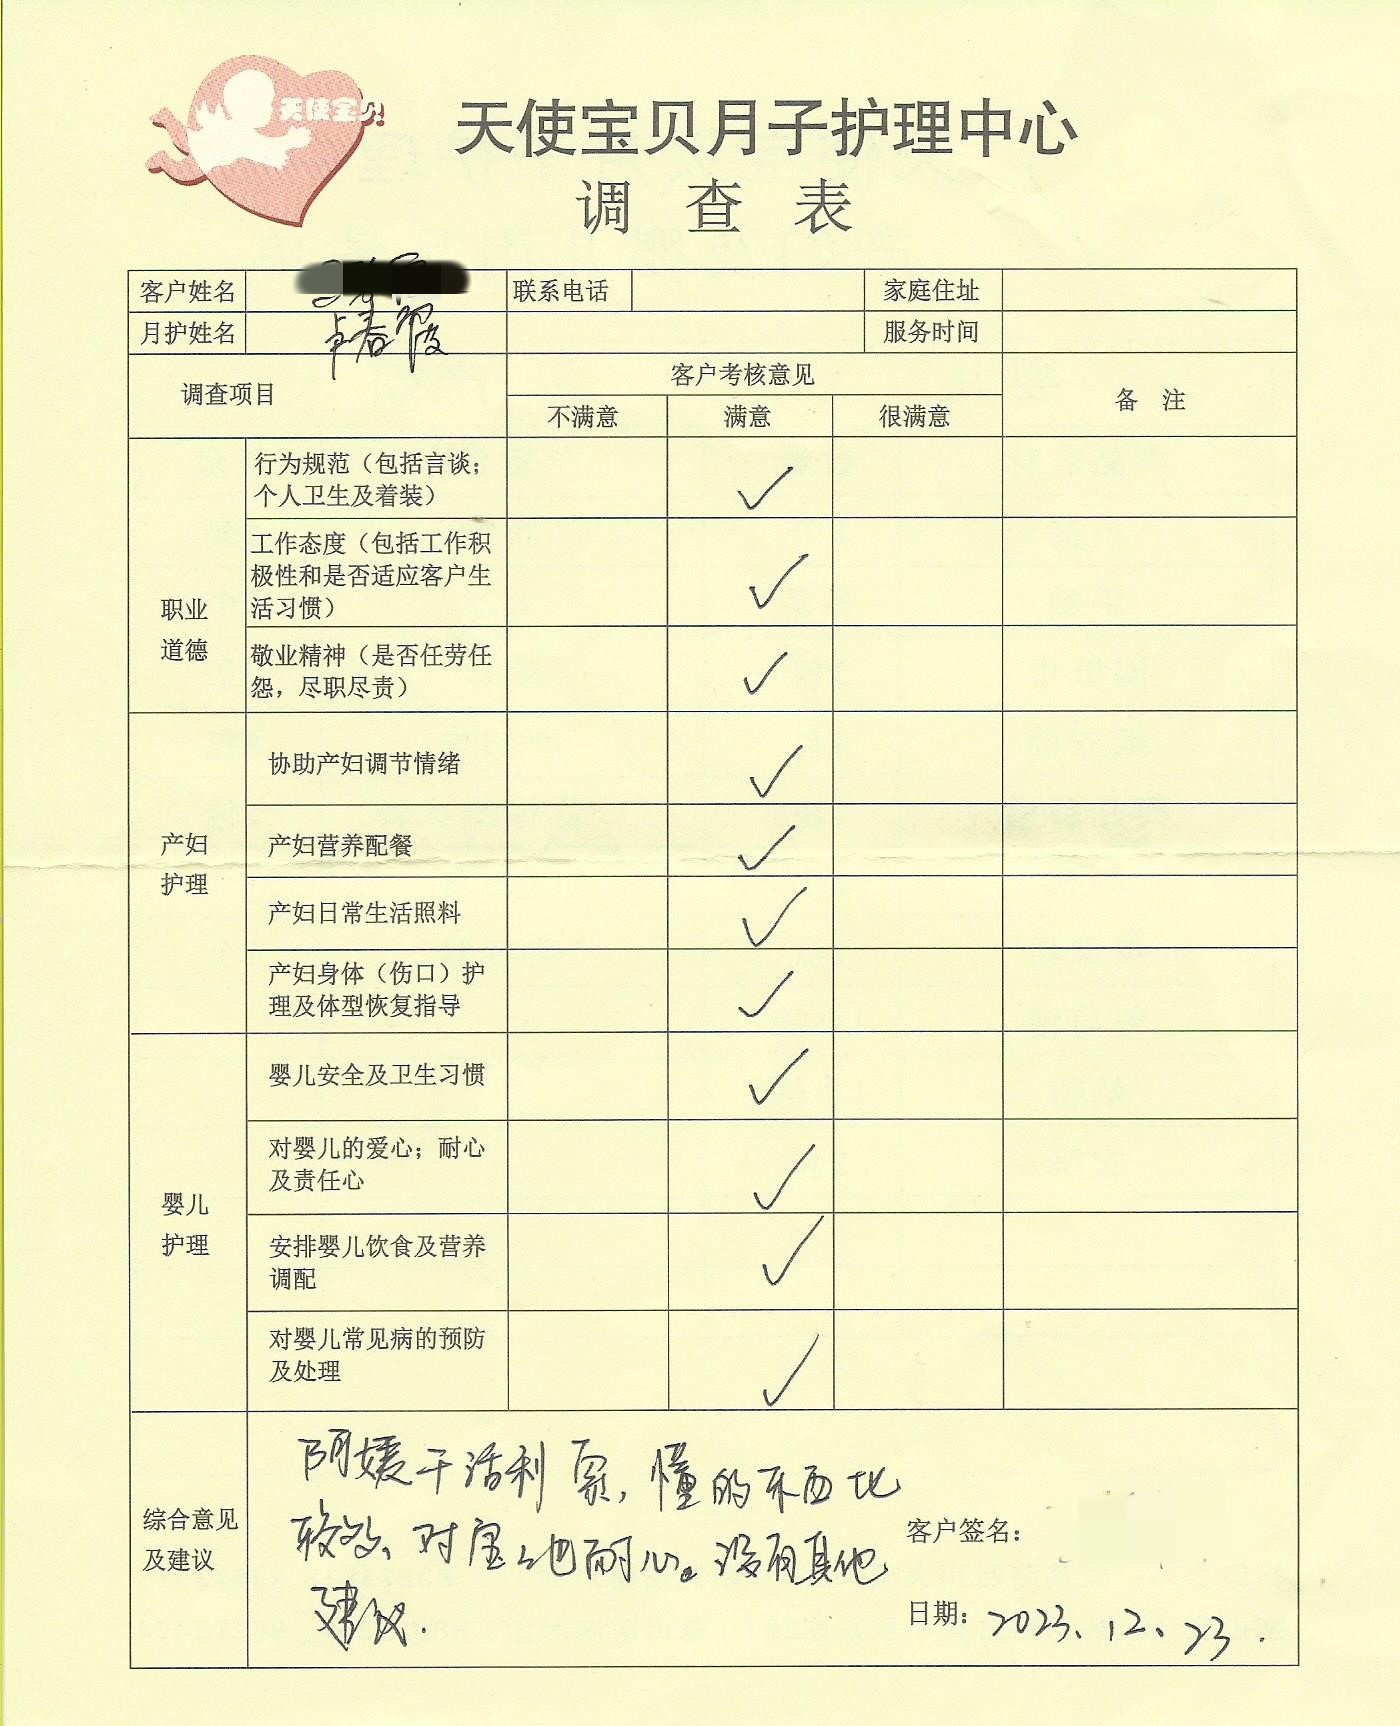 天使宝贝
天使宝贝月子护理中心
调查表
客户姓名 联系电话 家庭住址
月护姓名 卓春霞 服务时间
调查项目 客户考核意见 备注
不满意 满意 很满意
职业
道德
行为规范（包括言谈；
个人卫生及着装） ✓
工作态度（包括工作积
极性和是否适应客户生
活习惯） ✓
敬业精神（是否任劳任
怨，尽职尽责） ✓
产妇
护理
协助产妇调节情绪 ✓
产妇营养配餐 ✓
产妇日常生活照料 ✓
产妇身体（伤口）护
理及体型恢复指导 ✓
婴儿
护理
婴儿安全及卫生习惯 ✓
对婴儿的爱心；耐心
及责任心 ✓
安排婴儿饮食及营养
调配 ✓
对婴儿常见病的预防
及处理 ✓
综合意见
及建议
阿媛干活利索，懂的东西比
较多、对宝宝也耐心。没有其他
建议.
客户签名：
日期：2023、12、23.